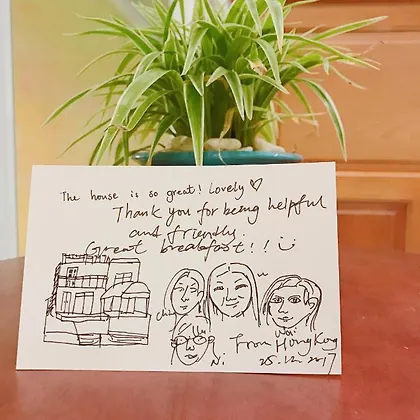 The house is so great! Lovely ♡
Thank you for being helpful
and friendly.
Great breakfast!! :)
Wai
Ni
From HongKong
25.12.2017